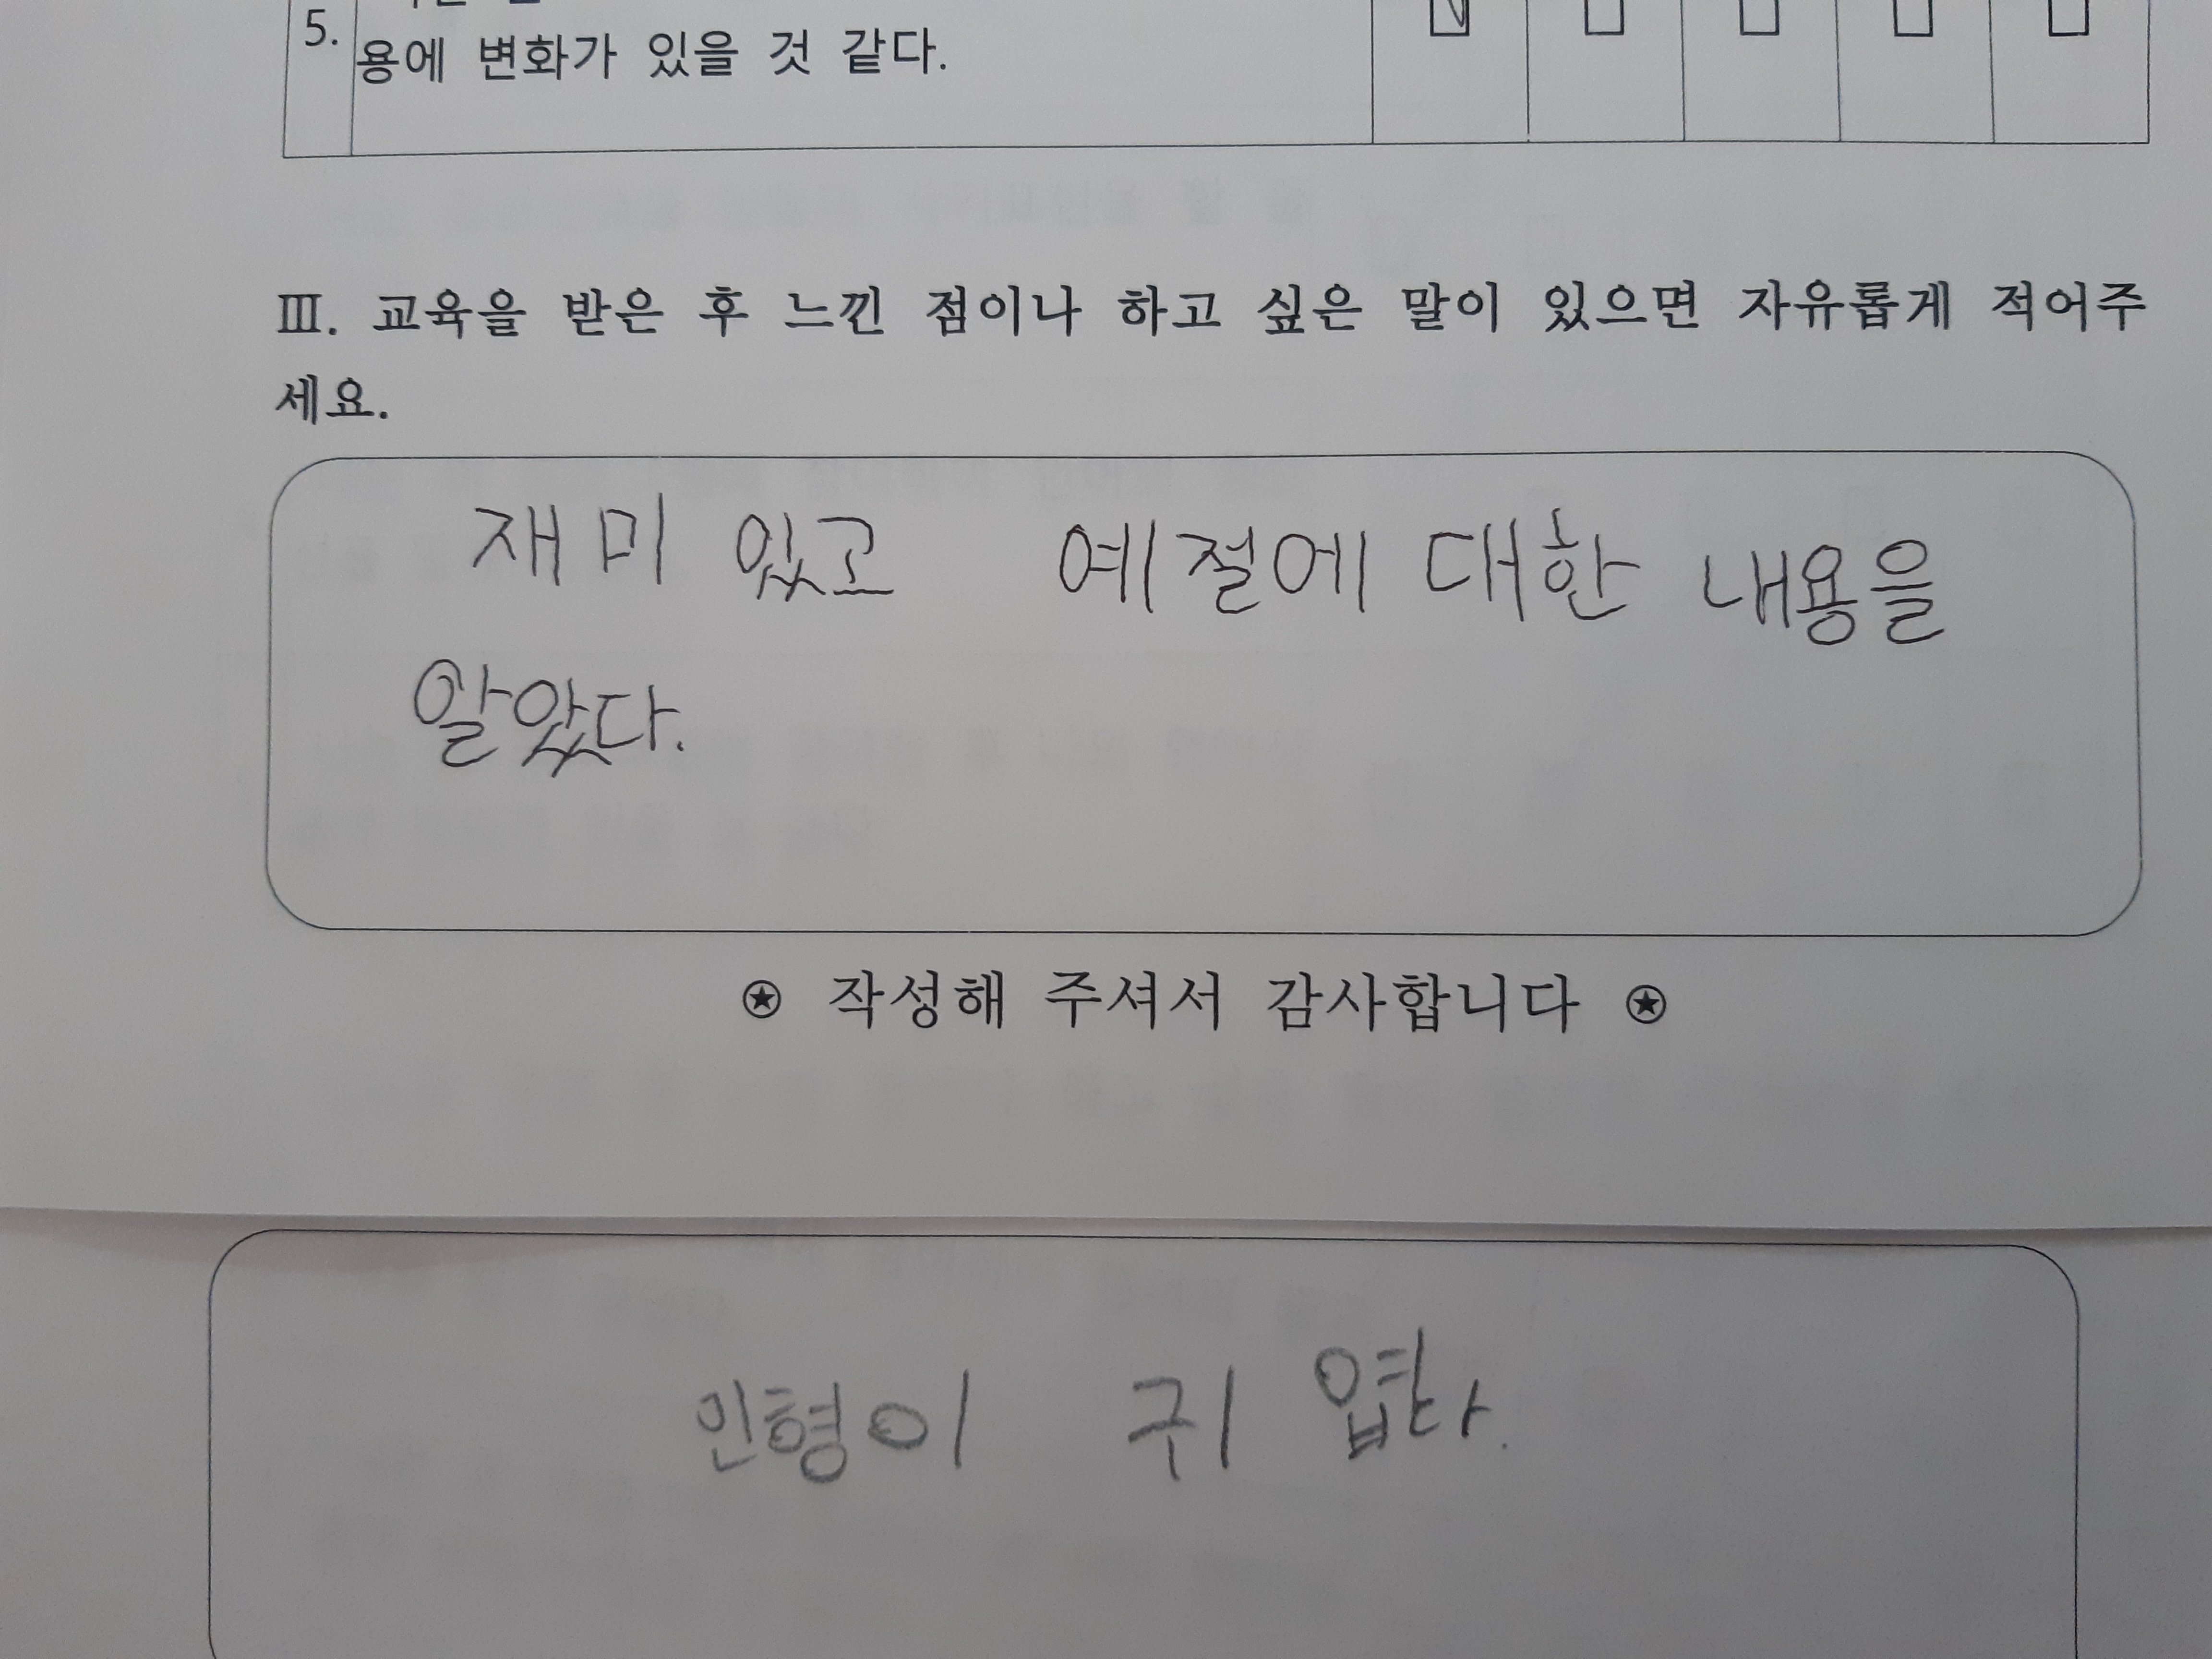 5.
용에 변화가 있을 것 같다.
Ⅲ. 교육을 받은 후 느낀 점이나 하고 싶은 말이 있으면 자유롭게 적어주
세요.
재미 있고 예절에 대한 내용을
알았다.
⍟ 작성해 주셔서 감사합니다 ⍟
인형이 귀 엽다.